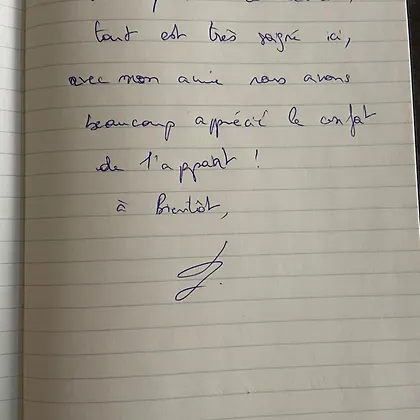 tout est très sagré ici,
avec mon amie nous avons
beaucoup apprécié le confat
de l'appart !
à Bientôt,